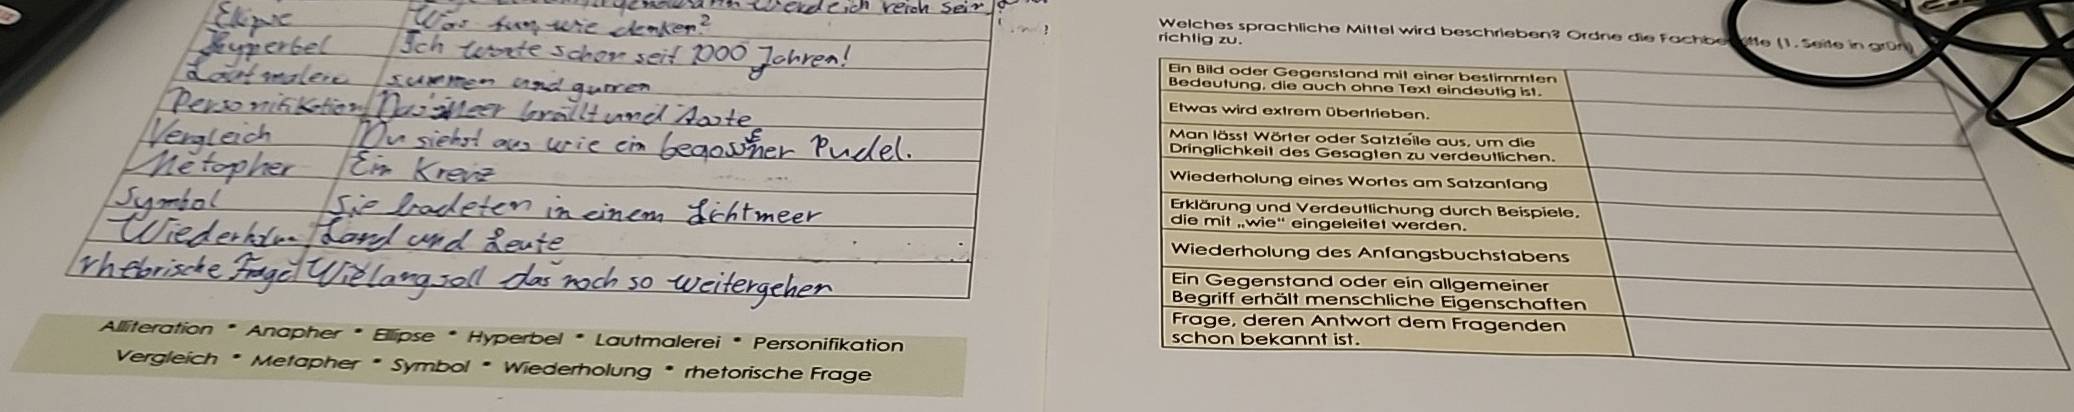 werde ich reich sein
Elipse Was tun, wie denken?
Hyperbel Ich warte schon seit 1000 Jahren!
Lautmalerei summen und gurren
Personifikation Das Meer brüllt und
Vergleich Du siehst aus wie ein begossener Pudel.
Metapher Ein Kreuz
Symbol Sie badeten in einem Lichtmeer
Land und Leute
rhetorische Frage Wie lang soll das noch so weitergehen
Alliteration * Anapher * Ellipse * Hyperbel * Lautmalerei * Personifikation
Vergleich * Metapher * Symbol * Wiederholung * rhetorische Frage
Welches sprachliche Mittel wird beschrieben? Ordne die (1. Seite in grün)
richtig zu.
Ein Bild oder Gegenstand mit einer bestimmten
Bedeutung, die auch ohne Text eindeutig ist.
Etwas wird extrem übertrieben.
Man lässt Wörter oder Satzteile aus, um die
Dringlichkeit des Gesagten zu verdeutlichen.
Wiederholung eines Wortes am Satzanfang
Erklärung und Verdeutlichung durch Beispiele,
die mit „wie“ eingeleitet werden.
Wiederholung des Anfangsbuchstabens
Ein Gegenstand oder ein allgemeiner
Begriff erhält menschliche Eigenschaften
Frage, deren Antwort dem Fragenden
schon bekannt ist.